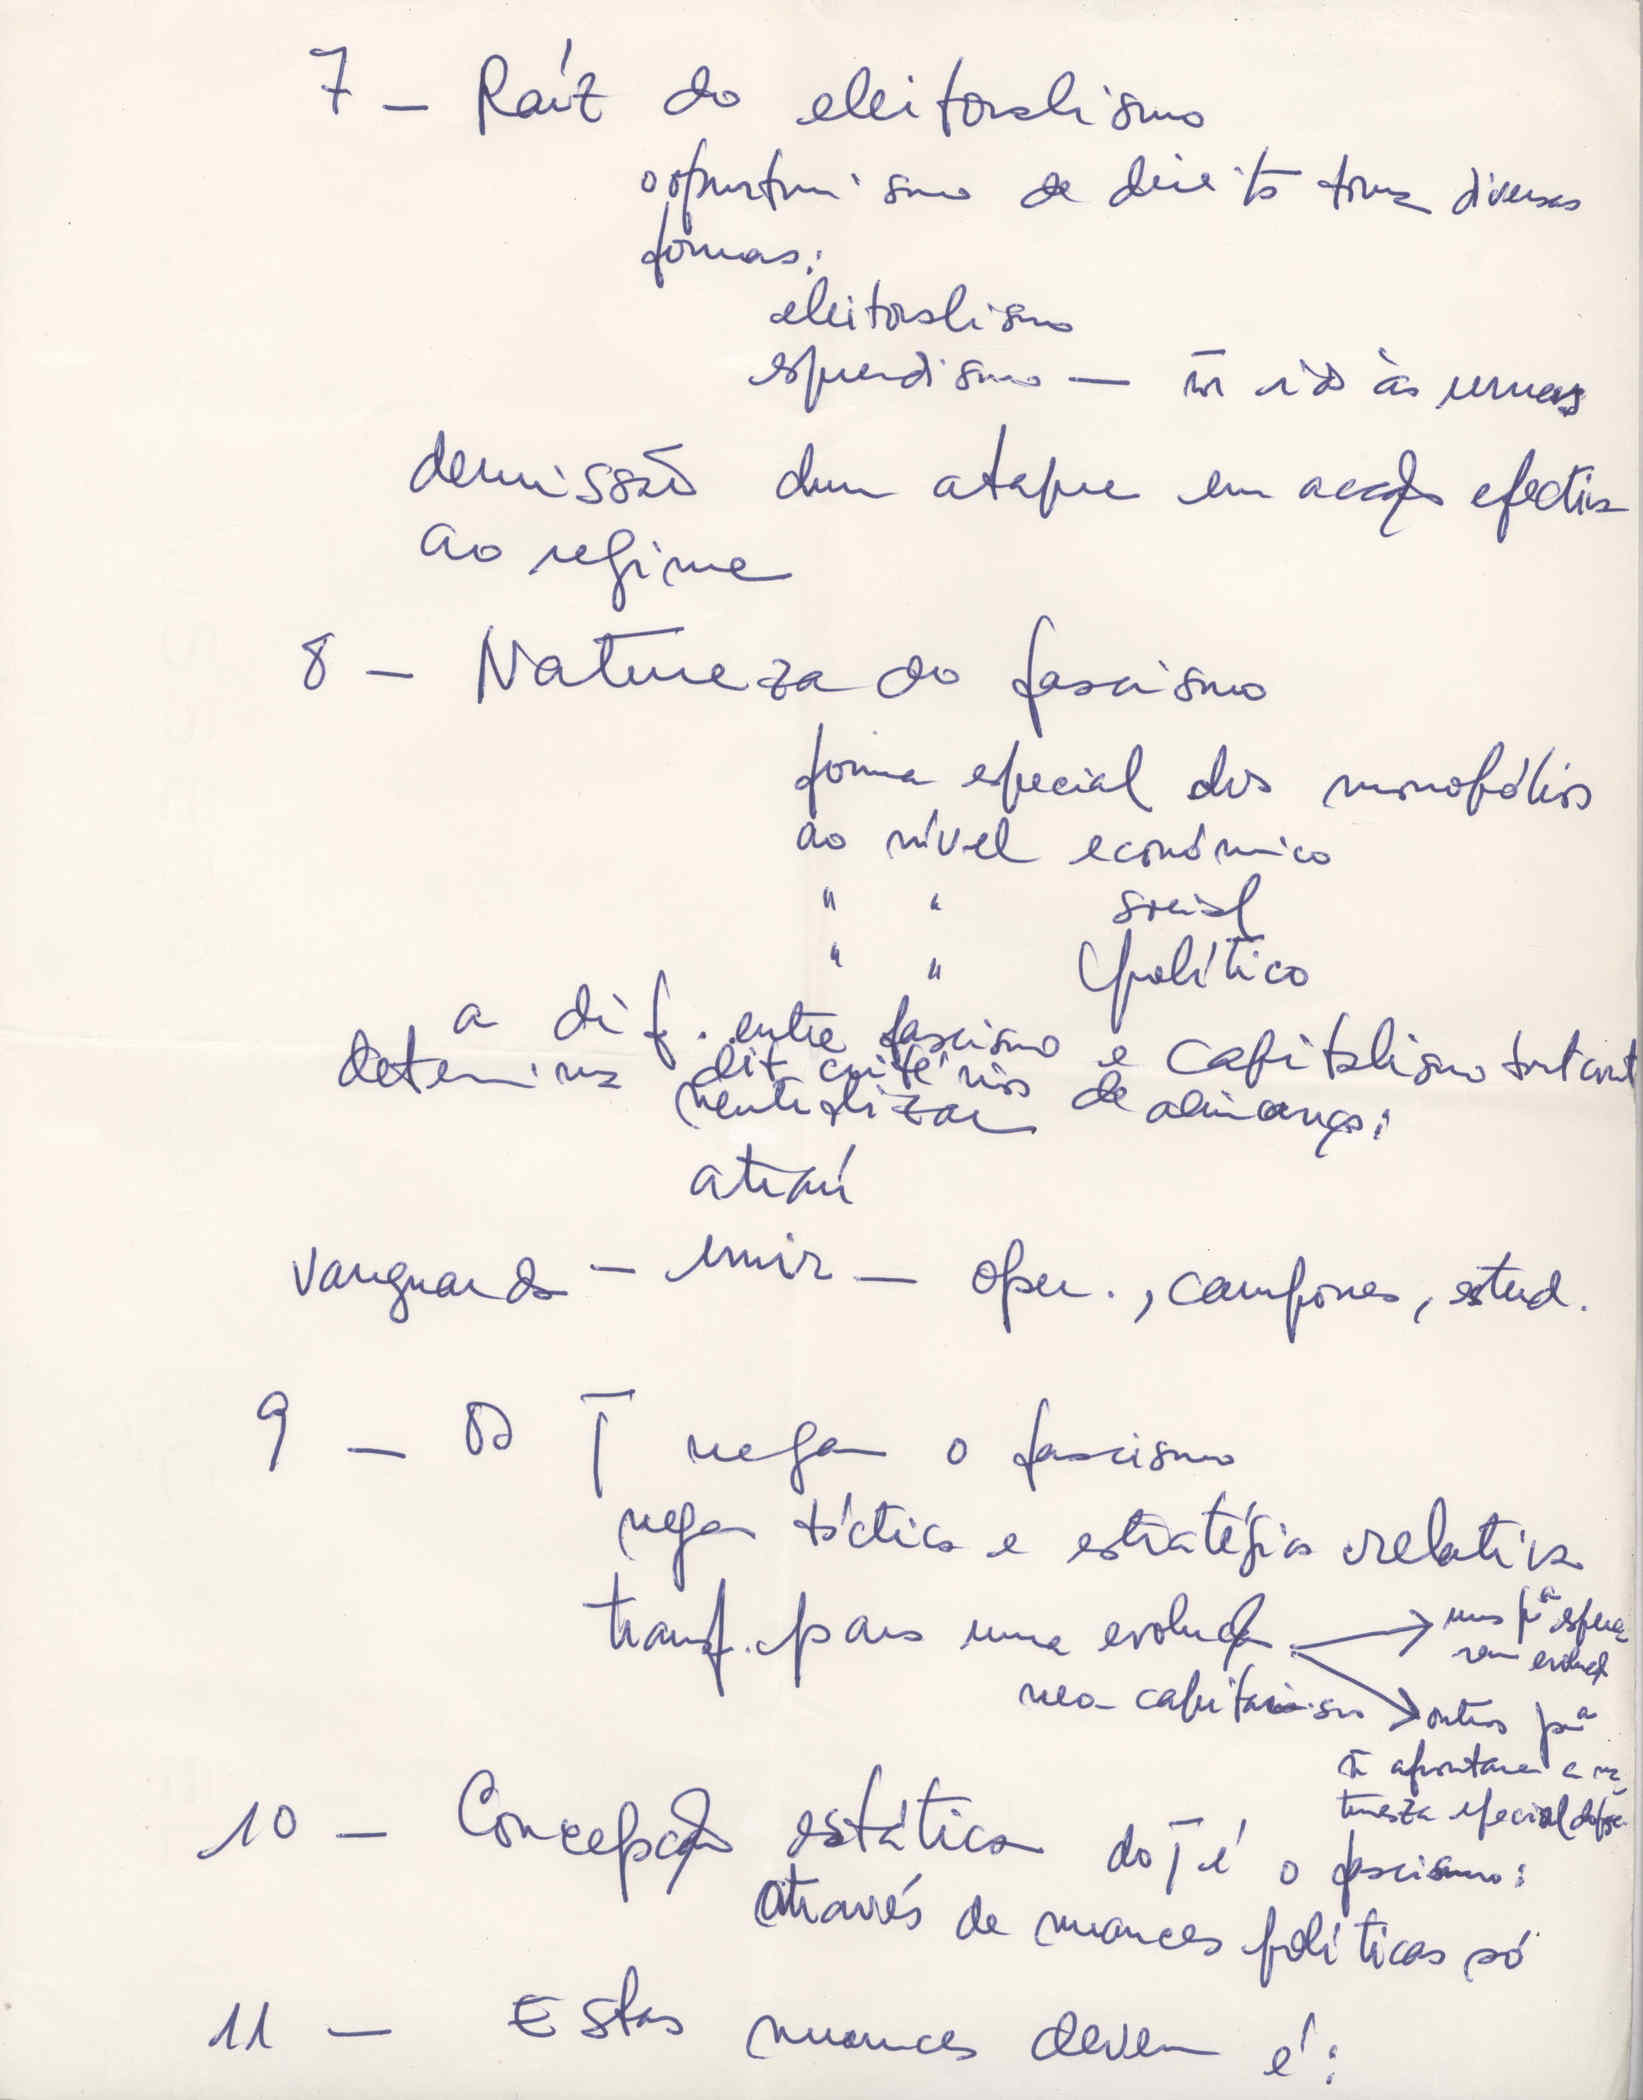 7 - Raíz do eleitoralismo
o oportunismo de direita toma diversas
formas:
eleitoralismo
esquerdismo - ñ ida às urnas
demissão dum ataque em acção efectiva
ao regime
8 - Natureza do fascismo
forma especial dos monopólios
ao nível económico
" " social
" " político
a dif. entre fascismo e capitalismo
determina dif. critérios de aliança:
neutralizar
atrair
vanguarda - unir - oper., campones, estud.
9 - Os T negam o fascismo
nega táctica e estratégia relativa
transf. para uma evolução
uns pª espera
rem evoluçã
neo-capitalismo
outros pª
ñ afrontarem a na
tureza especial do fsc.
10 - Concepção estática do T é o fascismo:
através de nuances políticas só
11 - Estas nuances devem é: